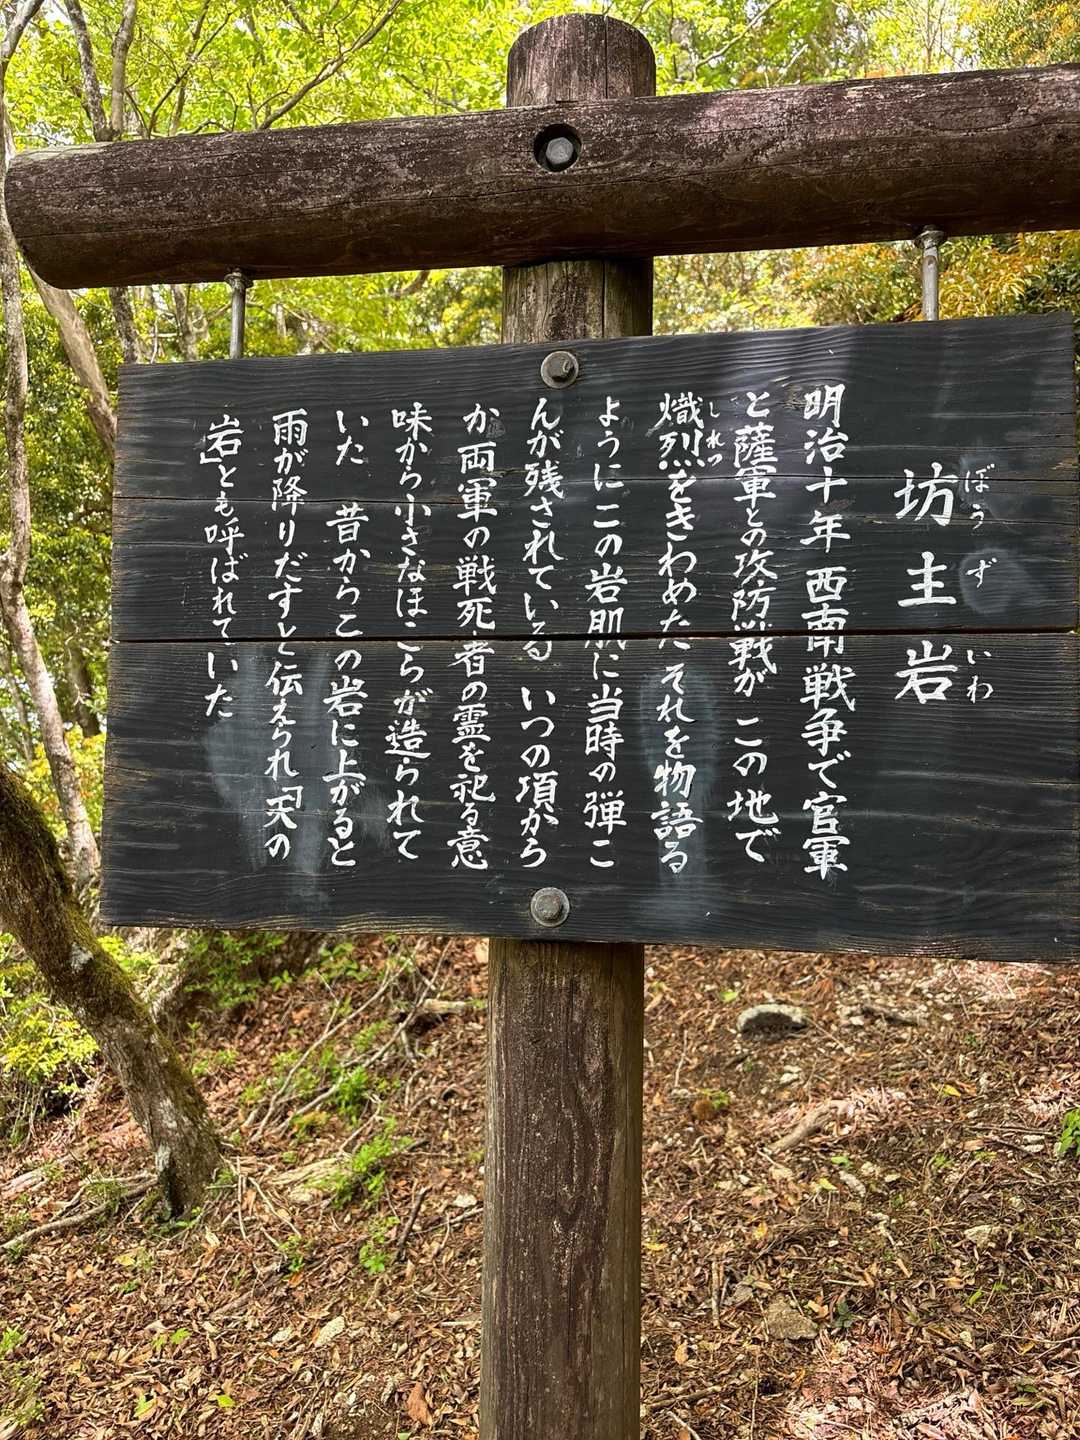 坊主岩
ぼうずいわ
明治十年 西南戦争で官軍
と薩軍との攻防戦が この地で
熾烈をきわめた それを物語る
しれつ
ようにこの岩肌に当時の弾こ
んが残されている いつの項から
か 両軍の戦死者の霊を祀る意
味から小さなほこらが造られて
いた 昔からこの岩に上がると
雨が降りだすと伝えられ「天の
岩」とも呼ばれていた